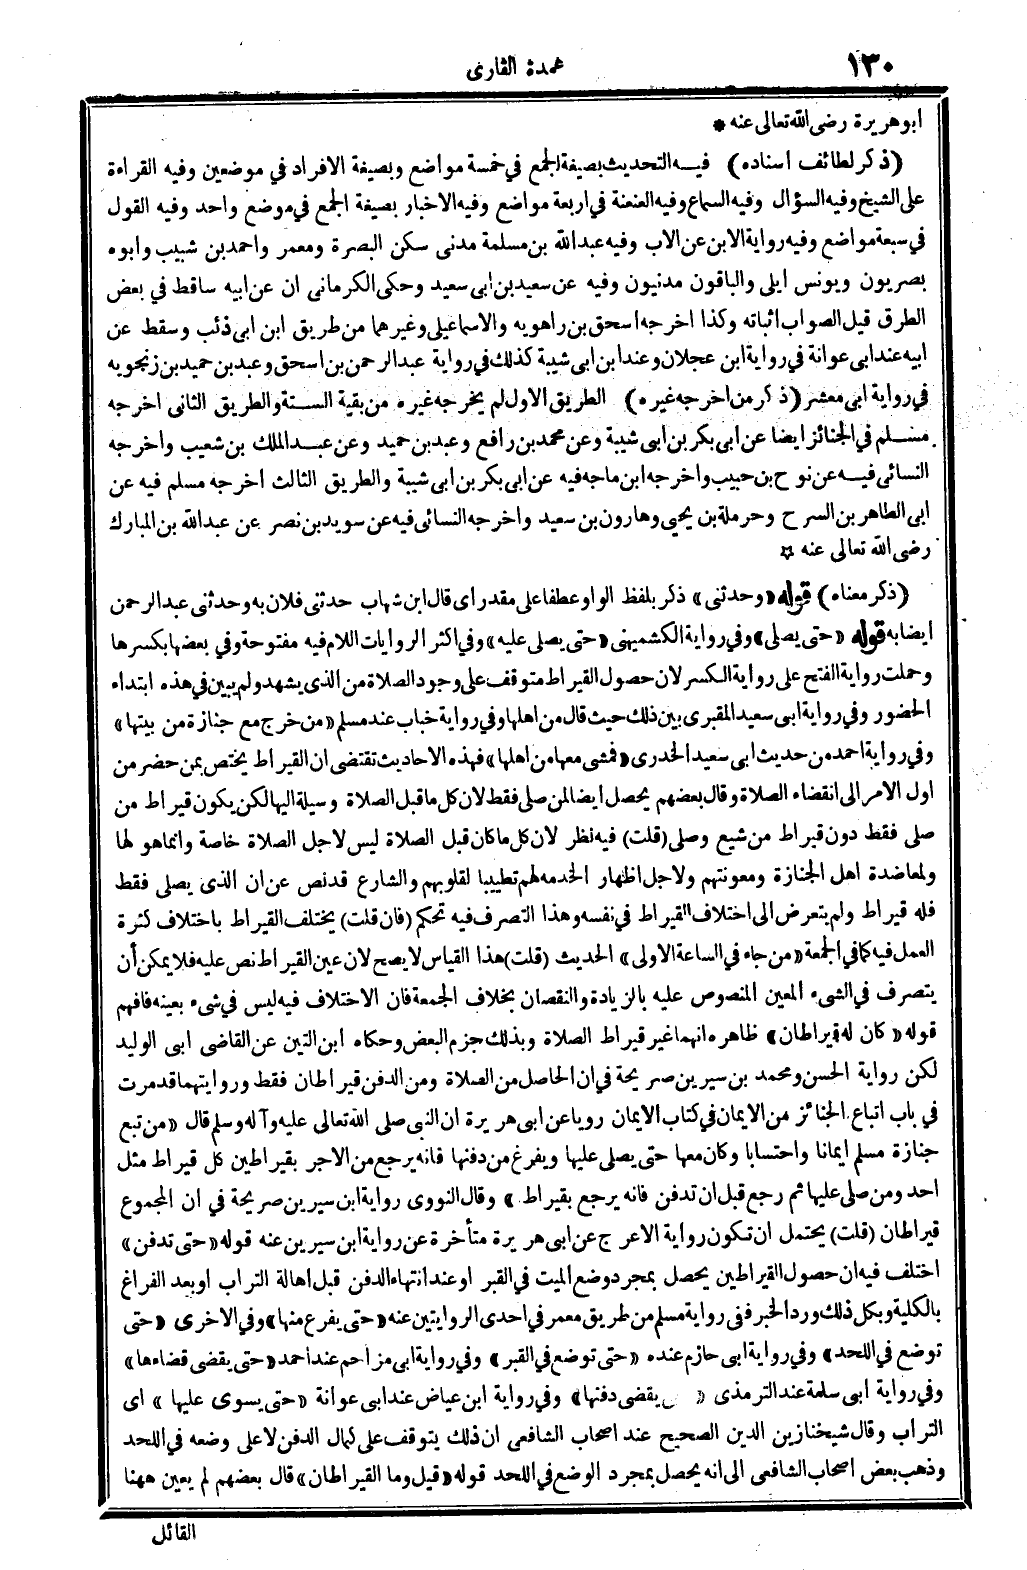 ١٣٠
عمدة القارى
ابو هريرة رضى الله تعالى عنه *
(ذكر لطائف اسناده) فيه التحديث بصيغة الجمع في خمسة مواضع وبصيغة الافراد في موضعين وفيه القراءة
على الشيخ وفيه السؤال وفيه السماع وفيه العنعنة في اربعة مواضع وفيه الاخبار بصيغة الجمع في موضع واحد وفيه القول
في سبعة مواضع وفيه رواية الابن عن الاب وفيه عبد الله بن مسلمة مدنى سكن البصرة ومعمر واحمد بن شبيب وابوه
بصريون ويونس ايلى والباقون مدنيون وفيه عن سعيد بن ابى سعيد وحكى الكرمانى ان عن ابيه ساقط في بعض
الطرق قيل الصواب اثباته وكذا اخرجه اسحق بن راهويه والاسماعيلى وغيرهما من طريق ابن ابى ذئب وسقط عن
ابيه عند ابى عوانة في رواية ابن عجلان وعند ابن ابى شيبة كذلك في رواية عبد الرحمن بن اسحق وعبد بن حميد بن زنجويه
في رواية ابى معشر (ذكر من اخرجه غيره) الطريق الاول لم يخرجه غيره من بقية الستة والطريق الثانى اخرجه
مسلم في الجنائز ايضا عن ابى بكر بن ابى شيبة وعن محمد بن رافع وعبد بن حميد وعن عبد الملك بن شعيب واخرجه
النسائى فيه عن نوح بن حبيب واخرجه ابن ماجه فيه عن ابى بكر بن ابى شيبة والطريق الثالث اخرجه مسلم فيه عن
ابى الطاهر بن السرح وحرملة بن يحيى وهارون بن سعيد واخرجه النسائى فيه عن سويد بن نصر عن عبد الله بن المبارك
رضى الله تعالى عنه ☆
(ذكر معناه) قوله «وحدثنى» ذكر بلفظ الواو عطفا على مقدر اى قال ابن شهاب حدثنى فلان به وحدثنى عبد الرحمن
ايضا به قوله «حتى يصلى» وفي رواية الكشميهنى «حتى يصلى عليه» وفي اكثر الروايات اللام فيه مفتوحة وفي بعضها بكسرها
وحملت رواية الفتح على رواية الكسر لان حصول القيراط متوقف على وجود الصلاة من الذى يشهد ولم يبين في هذه ابتداء
الحضور وفي رواية ابى سعيد المقبرى بين ذلك حيث قال من اهلها وفي رواية خباب عند مسلم «من خرج مع جنازة من بيتها»
وفي رواية احمد من حديث ابى سعيد الخدرى «فمشى معها من اهلها» فهذه الاحاديث تقتضى ان القيراط يختص بمن حضر من
اول الامر الى انقضاء الصلاة وقال بعضهم يحصل ايضا لمن صلى فقط لان كل ما قبل الصلاة وسيلة اليها لكن يكون قيراط من
صلى فقط دون قيراط من شيع وصلى (قلت) فيه نظر لان كل ما كان قبل الصلاة ليس لاجل الصلاة خاصة وانما هو لها
ولمعاضدة اهل الجنازة ومعونتهم ولاجل اظهار الخدمه لهم تطييبا لقلوبهم والشارع قد نص عن ان الذى يصلى فقط
فله قيراط ولم يتعرض الى اختلاف القيراط في نفسه وهذا التصرف فيه تحكم (فان قلت) يختلف القيراط باختلاف كثرة
العمل فيه كما في الجمعة «من جاء في الساعة الاولى» الحديث (قلت) هذا القياس لا يصح لان عين القيراط نص عليه فلا يمكن أن
يتصرف في الشىء المعين المنصوص عليه بالزيادة والنقصان بخلاف الجمعة فان الاختلاف فيه ليس في شىء بعينه فافهم
قوله «كان له قيراطان» ظاهره انهما غير قيراط الصلاة وبذلك جزم البعض وحكاه ابن التين عن القاضى ابى الوليد
لكن رواية الحسن ومحمد بن سيرين صريحة في ان الحاصل من الصلاة ومن الدفن قيراطان فقط وروايتهما قد مرت
في باب اتباع الجنائز من الايمان في كتاب الايمان رويا عن ابى هريرة ان النبى صلى الله تعالى عليه وآله وسلم قال «من تبع
جنازة مسلم ايمانا واحتسابا وكان معها حتى يصلى عليها ويفرغ من دفنها فانه يرجع من الاجر بقيراطين كل قيراط مثل
احد ومن صلى عليها ثم رجع قبل ان تدفن فانه يرجع بقيراط» وقال النووى رواية ابن سيرين صريحة في ان المجموع
قيراطان (قلت) يحتمل ان تكون رواية الاعرج عن ابى هريرة متأخرة عن رواية ابن سيرين عنه قوله «حتى تدفن»
اختلف فيه ان حصول القيراطين يحصل بمجرد وضع الميت في القبر او عند انتهاء الدفن قبل اهالة التراب او بعد الفراغ
بالكلية وبكل ذلك ورد الخبر ففى رواية مسلم من طريق معمر في احدى الروايتين عنه «حتى يفرغ منها» وفي الاخرى «حتى
توضع في اللحد» وفي رواية ابى حازم عنده «حتى توضع في القبر» وفي رواية ابى مزاحم عند احمد «حتى يقضى قضاءها»
وفي رواية ابى سلمة عند الترمذى « يقضى دفنها» وفي رواية ابن عياض عند ابى عوانة «حتى يسوى عليها» اى
التراب وقال شيخنا زين الدين الصحيح عند اصحاب الشافعى ان ذلك يتوقف على كمال الدفن لا على وضعه في اللحد
وذهب بعض اصحاب الشافعى الى انه يحصل بمجرد الوضع في اللحد قوله «قيل وما القيراطان» قال بعضهم لم يعين ههنا
القائل